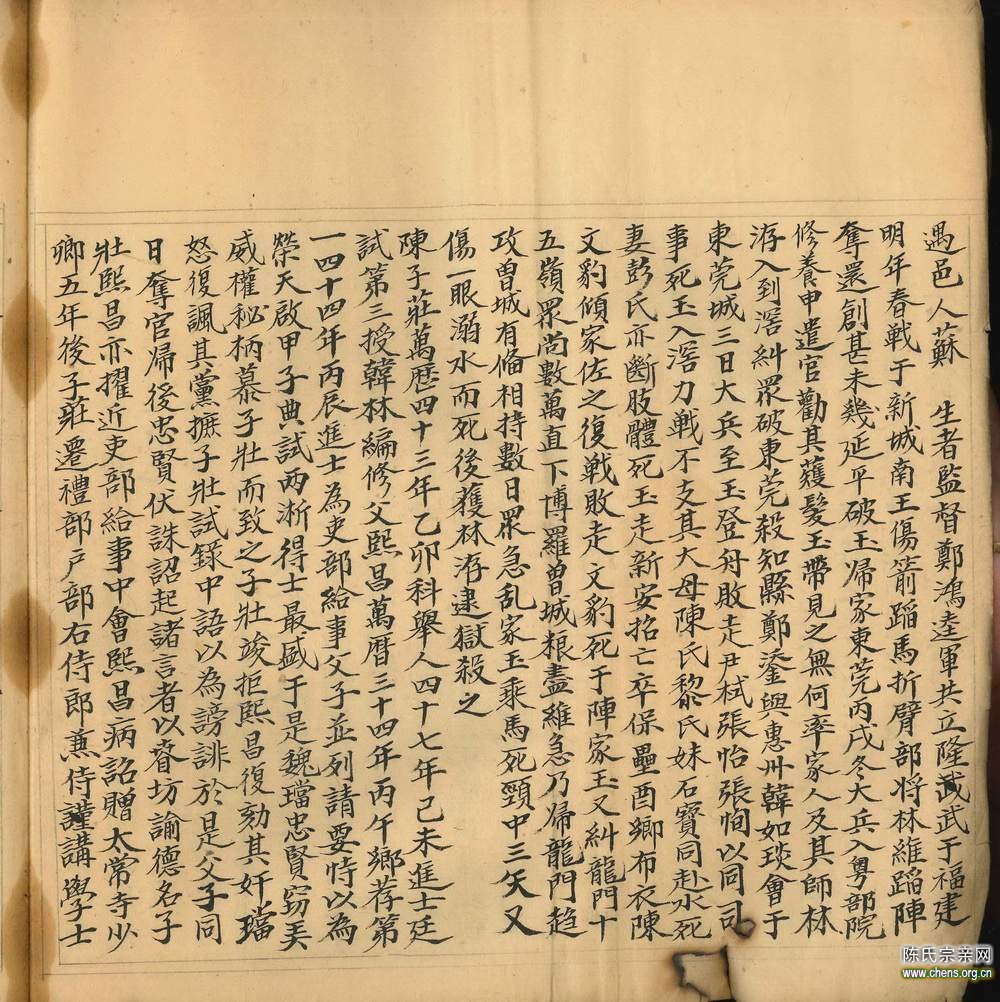 遇邑人蘇　生者監督鄭鴻逵軍共立隆武武于福建
明年春戦于新城南王傷箭蹈馬折臂部将林維蹈陣
奪還創甚未幾延平破玉㱕家東莞丙戌冬大兵入粤部院
修養甲遣官勸其薙髮玉帶見之無何率家人及其師林
洊入到滘糾眾破東莞殺知縣鄭鋈與惠卅韓如琰會于
東莞城三日大兵至玉登舟敗走尹栻張怡張恂以同司
事死玉入滘力戦不支其大母陳氏黎氏妹石寶同赴水死
妻彭氏亦斷肢體死玉走新安招亡卒保壘酉鄉布衣陳
文豹傾家佐之復戦敗走文豹死于陣家玉又糾龍門十
五嶺眾尚數萬直下博羅曾城粮盡維急乃㱕龍門趋
攻曾城有俻相持數日眾急乱家玉乘馬死頸中三矢又
傷一眼溺水而死後獲林洊逮獄殺之
陳子莊萬歷四十三年乙卯科舉人四十七年己未進士廷
試第三授韓林編修父熙昌萬曆三十四年丙午鄉荐第
一四十四年丙辰進士為吏部給事父子並列請要恃以為
榮天啟甲子典試两淅得士最盛于是魏璫忠賢窃美
威權秘柄慕子壯而致之子壯竣拒熙昌復劾其奸璫
怒復諷其黨摭子壯試錄中語以為謗誹於是父子同
日奪官㱕後忠賢伏誅詔起諸言者以㫺坊諭德名子
壯熙昌亦擢近吏部給事中會熙昌病詔贈太常寺少
卿五年後子莊遷禮部戸部右侍郎蒹侍謹講學士
陈氏宗亲网
www.chens.org.cn